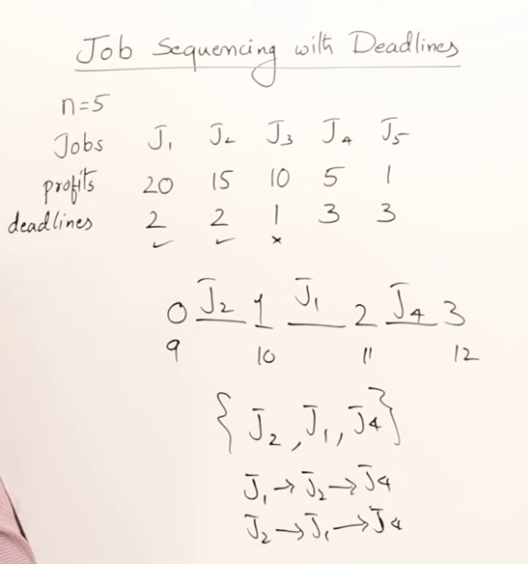 Job Sequencing with Deadlines
n=5
Jobs J₁ J₂ J₃ J₄ J₅
profits 20 15 10 5 1
deadlines 2 2 1 3 3
✓ ✓ ×
0 J₂ 1 J₁ 2 J₄ 3
9 10 11 12
{J₂, J₁, J₄}
J₁ → J₂ → J₄
J₂ → J₁ → J₄